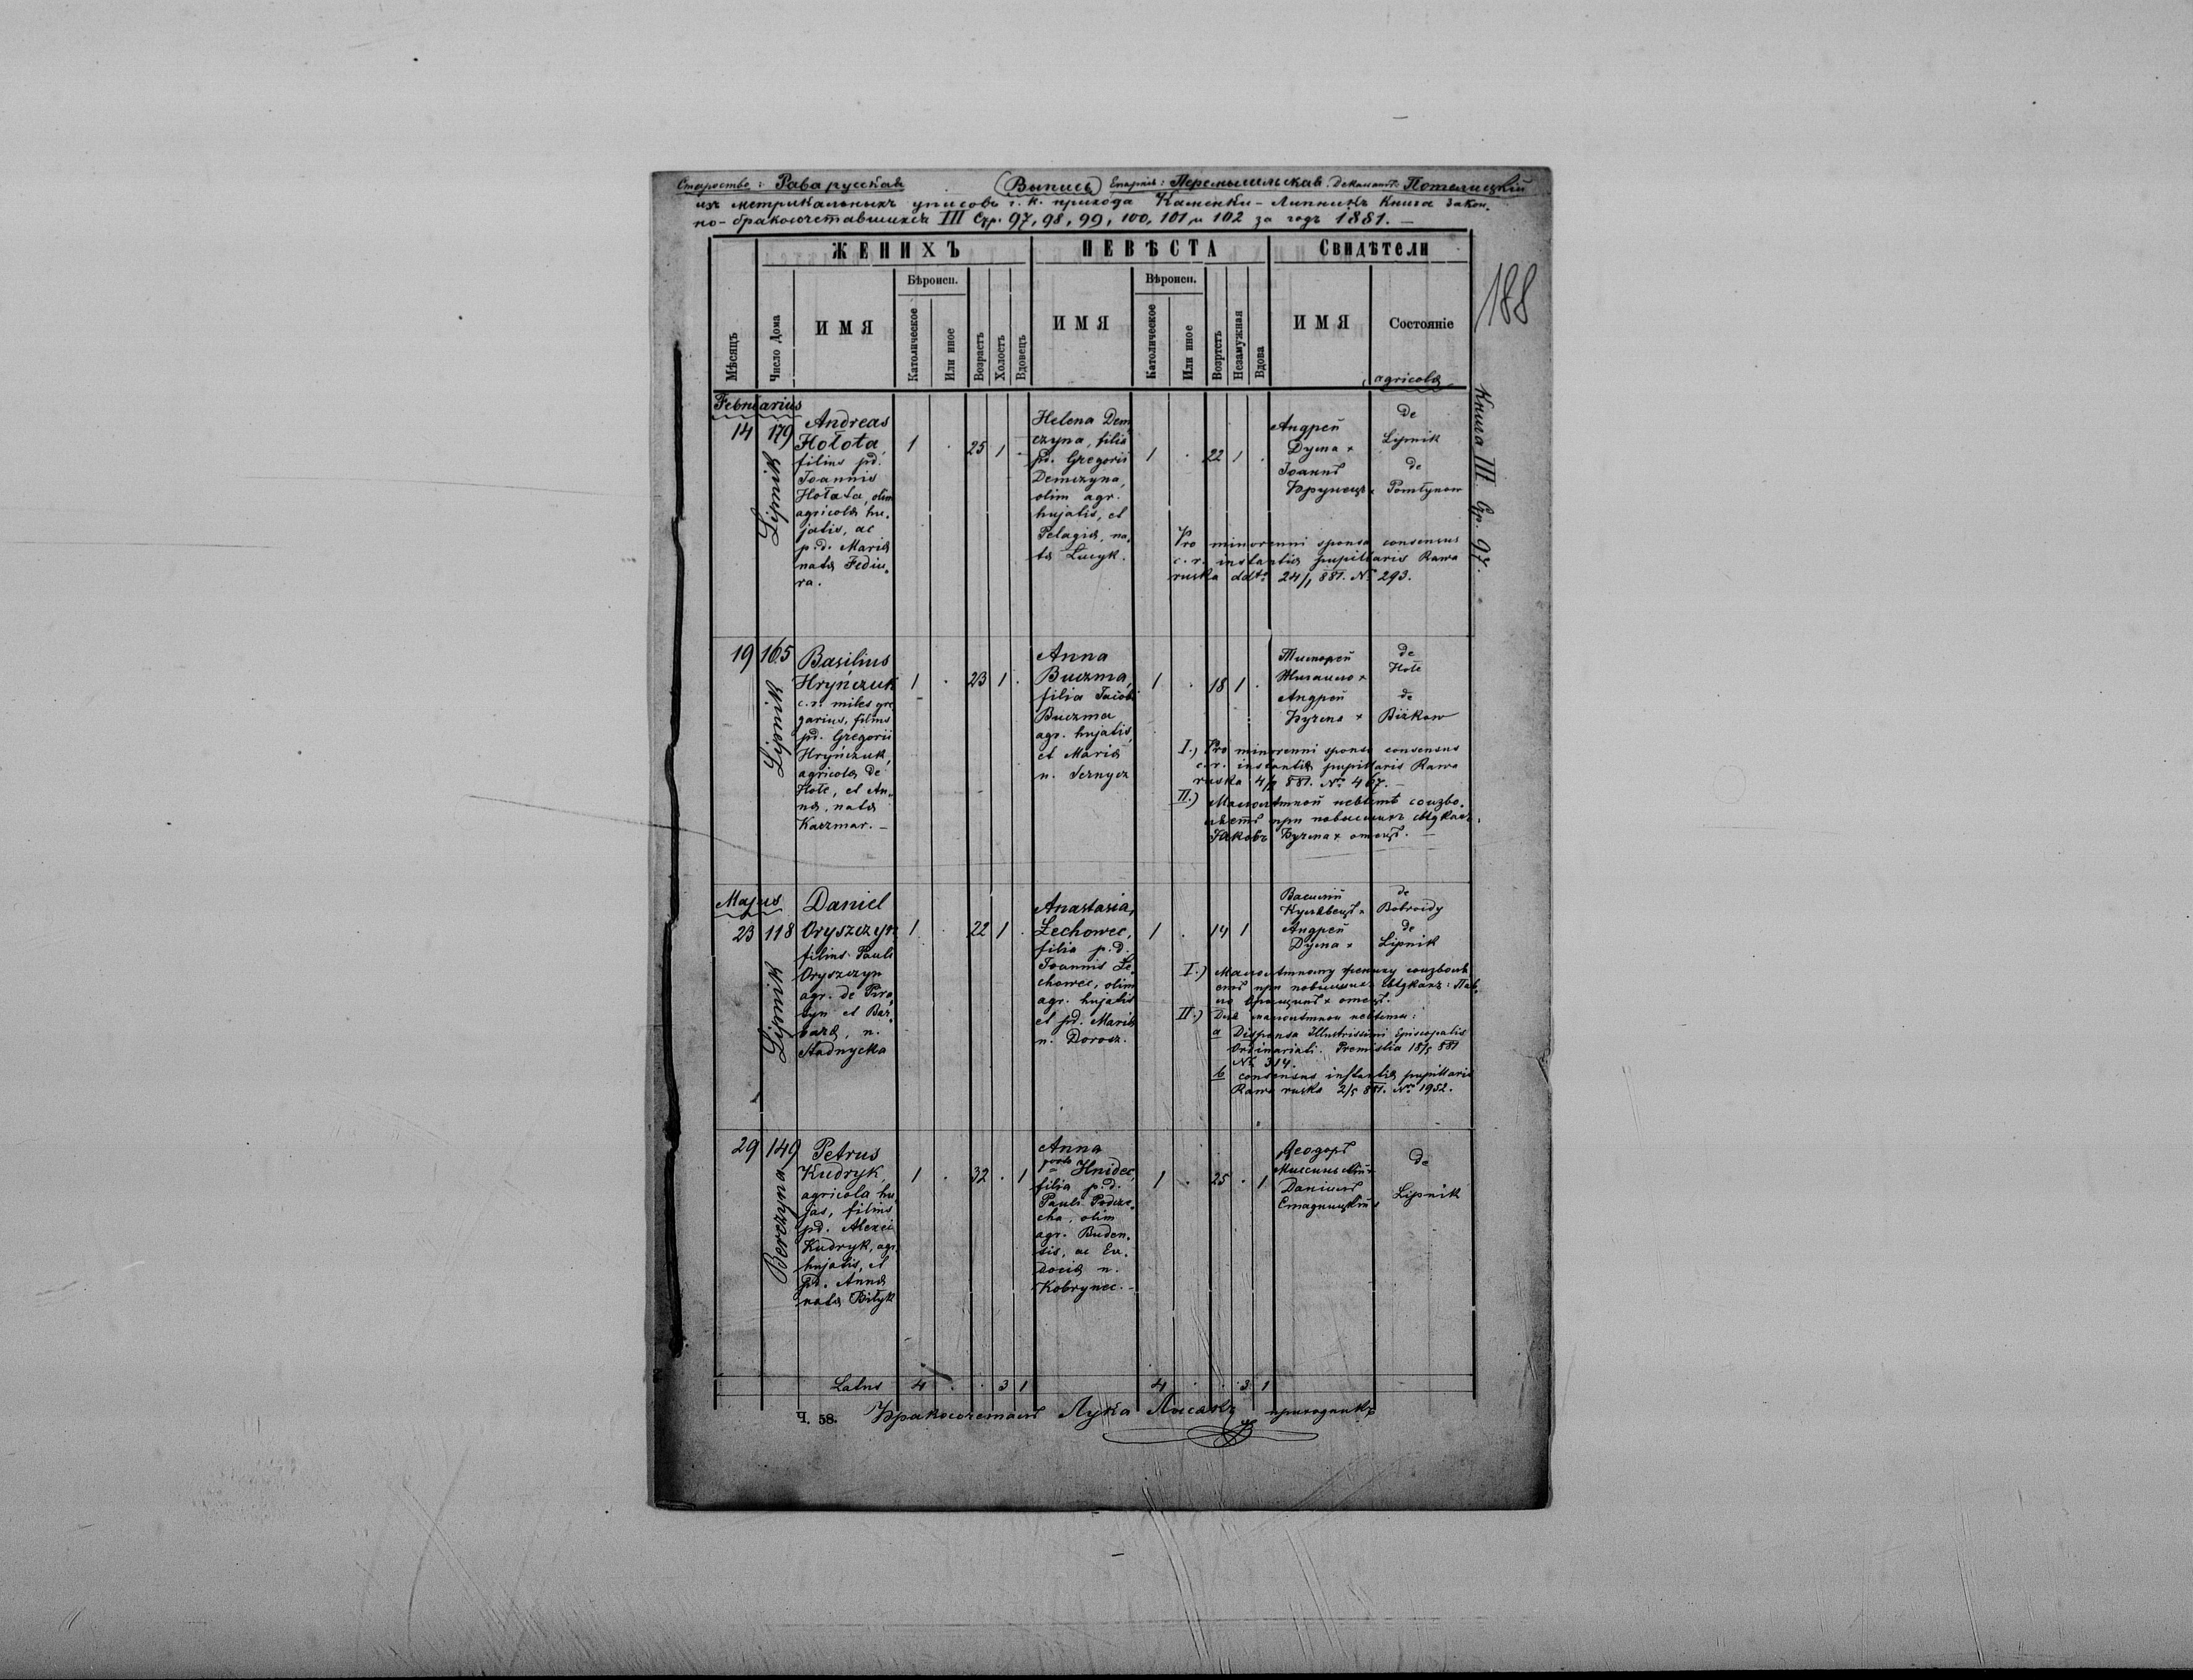 Староство: Рава русская (Выпись) Епархія: Перемышльская. Деканатъ: Потелицкій
изъ метрикальныхъ уписовъ г. к. прихода Каменки-Липникъ Книга закон-
но-бракосочетавшихся III Стр. 97, 98, 99, 100, 101 и 102 за годъ 1881. —
188
Книга III. Стр. 97.
ЖЕНИХЪ НЕВѢСТА Свидѣтели
Мѣсяцъ
Число Дома
ИМЯ
Вѣроисп.
Католическое
Или иное
Возрастъ
Холостъ
Вдовецъ
ИМЯ
Вѣроисп.
Католическое
Или иное
Возрстъ
Незамужная
Вдова
ИМЯ
Состояніе
agricola
Februarius
14 179
Lipnik
Andreas
Hołota,
filius pd.
Joannis
Hołota, olim
agricola hu-
jatis, ac
p.d. Maria
nata Fediu-
ra.
1 . 25 1 .
Helena Dem
czyna, filia
pd. Gregorii
Demczyna,
olim agr.
hujatis, et
Pelagia, na-
ta Łucyk.
1 . 22 1 .
Андрей
Дума +
Іоаннъ
Брунець +
de
Lipnik
de
Pomłynow
Pro minorenni sponsa consensus
c. r. instantia pupillaris Rawa
ruska ddto 24/1 881. No 293.
19 165
Lipnik
Basilius
Hryńczuk
c. r. miles gre
garius, filius
pd. Gregorii
Hryńczuk,
agricola de
Hołe, et An-
na, nata
Kaczmar. —
1 . 23 1 .
Anna
Buczma,
filia Jacobi
Buczma
agr. hujatis,
et Maria
n. Sernycz
1 . 18 1 .
Тимофей
+
Андрей
Бучма +
de
Hołe
de
Biżkow
I.) Pro minorenni sponsa consensus
c. r. instantia pupillaris Rawa
ruska 4/2 881. No 467. —
II.) Малолѣтной невѣстѣ соизво-
ляетъ при повысшихъ свѣдкахъ:
Яковъ Бучма + отецъ. —
Majus
23 118
Lipnik
Daniel
Oryszczyn
filius Pauli
Oryszczyn
agr. de Piro-
zyn et Bar-
bara, n.
Stadnycka
1 . 22 1 .
Anastasia,
Łechowec,
filia p.d.
Joannis Łe-
chowec, olim
agr. hujatis
et pd. Maria
n. Dorosz.
1 . 14 1
Василій
Кульвець +
Андрей
Дума +
de
Bobroidy
de
Lipnik
I.) Малолѣтному жениху соизволя
етъ при повысшихъ свѣдкахъ: Пав-
ло Орищинъ + отецъ.
II.) Для малолѣтной невѣсты:
a Dispensa Illustrissimi Episcopalis
Ordinariati. Premislia 18/5 881
No 314.
b consensus instantia pupillaris
Rawa ruska 2/5 881. No 1952.
29 149
Berezyna
Petrus
Kudryk,
agricola hu
jas, filius
pd. Alexii
Kudryk, agr.
hujatis, et
pd. Anna
nata Biłyk
1 . 32 . 1
Anna
Hnidec,
filia p.d.
Pauli Podcze-
cha, olim
agr. Buden-
sis, ac Eu-
docia n.
Kobrynec. —
1 . 25 . 1
Ѳеодоръ
+
Даніилъ
Стадницкій +
de
Lipnik
Latus 4 . . 3 1 4 . . 3 1
Ч. 58. Бракосочеталъ Лука Лисакъ приходникъ